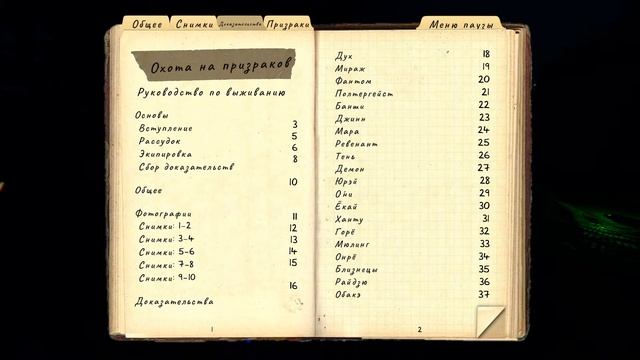 Общее Снимки Доказательства Призраки Меню паузы
Охота на призраков
Руководство по выживанию
Основы
Вступление 3
Рассудок 5
Экипировка 6
Сбор доказательств 8
Общее 10
Фотографии 11
Снимки: 1-2 12
Снимки: 3-4 13
Снимки: 5-6 14
Снимки: 7-8 15
Снимки: 9-10
Доказательства 16
1
Дух 18
Мираж 19
Фантом 20
Полтергейст 21
Банши 22
Джинн 23
Мара 24
Ревенант 25
Тень 26
Демон 27
Юрэй 28
Они 29
Ёкай 30
Ханту 31
Горё 32
Мюлинг 33
Онрё 34
Близнецы 35
Райдзю 36
Обакэ 37
2